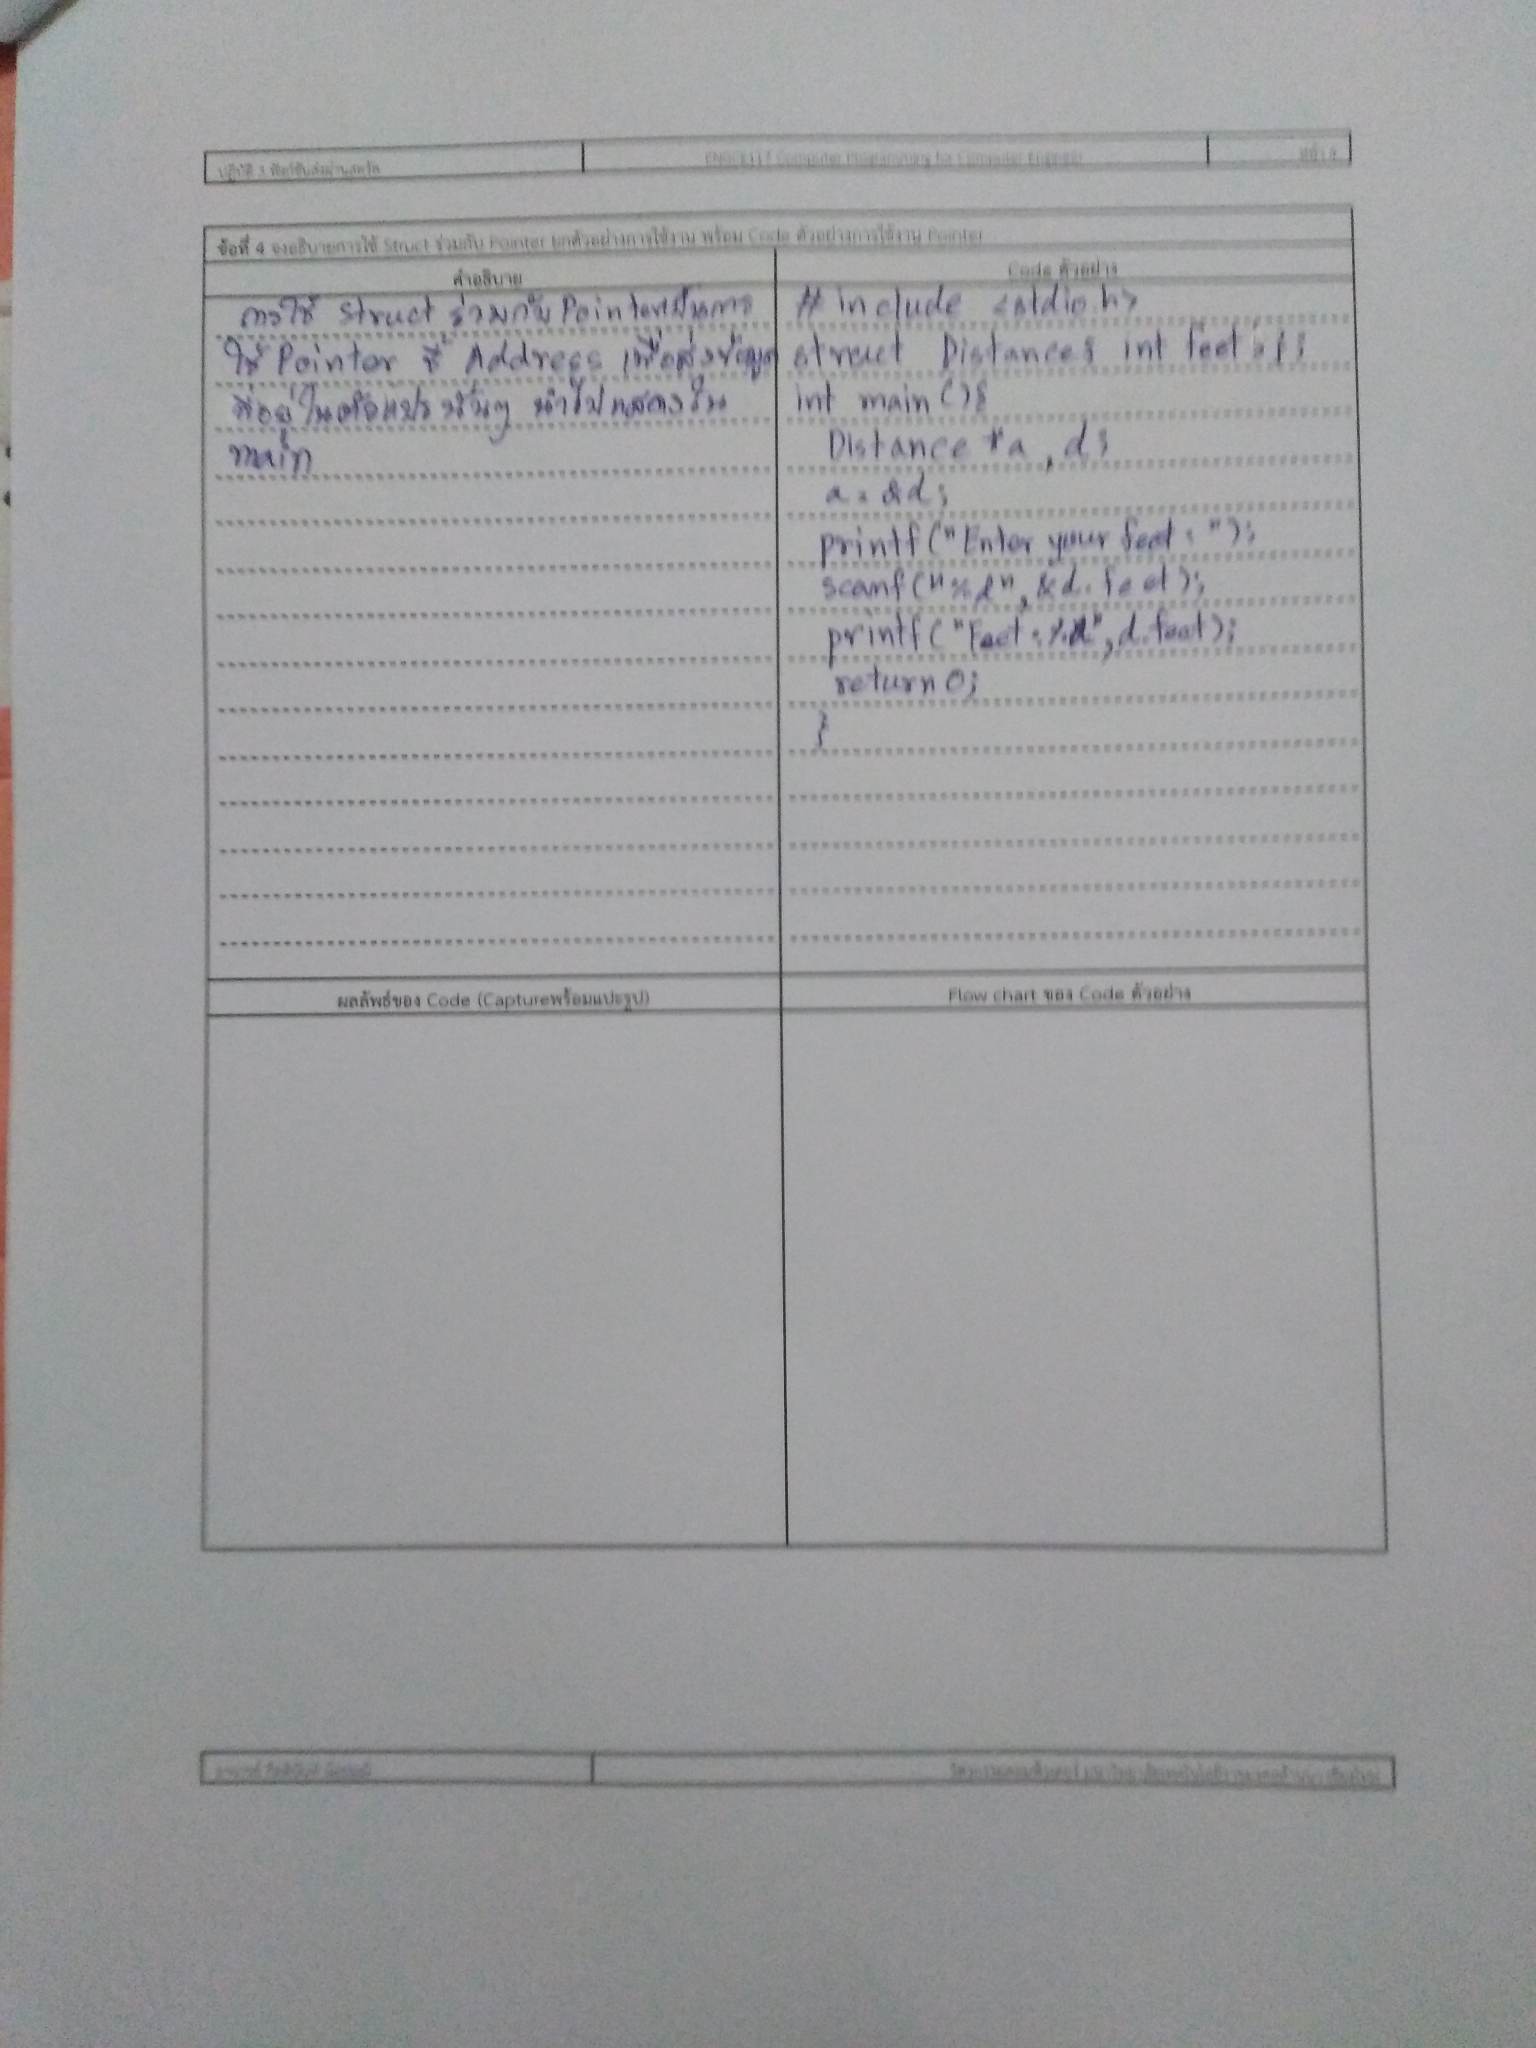 ปฏิบัติ 3 ฟังก์ชันส่งผ่านสตรัค
Computer Programming for Computer Engineer
ข้อที่ 4 จงอธิบายการใช้ Struct ร่วมกับ Pointer ยกตัวอย่างการใช้งาน พร้อม Code ตัวอย่างการใช้งาน Pointer
คำอธิบาย
การใช้ Struct ร่วมกับ Pointer เป็นการ
ใช้ Pointer ชี้ Address เพื่อส่งข้อมูล
ที่อยู่ในตัวแปรนั้นๆ นำไปแสดงใน
main
Code ตัวอย่าง
# include <stdio.h>
struct Distance{ int feet ; };
int main(){
Distance *a , d ;
a = &d ;
printf("Enter your feet : ");
scanf("%d", &d.feet);
printf("Feet : %d", d.feet);
return 0;
}
ผลลัพธ์ของ Code (Captureพร้อมแปะรูป)
Flow chart ของ Code ตัวอย่าง